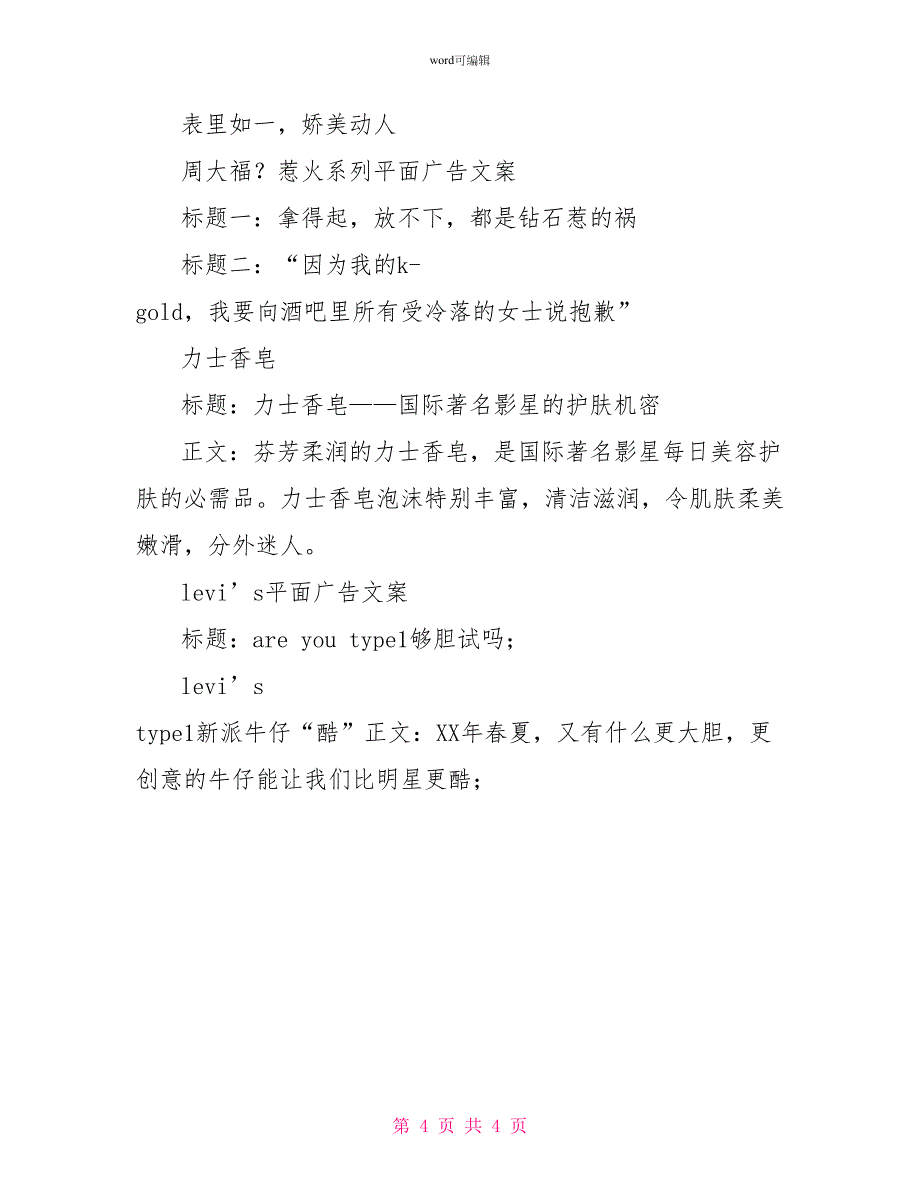 word可编辑
表里如一，娇美动人
周大福？惹火系列平面广告文案
标题一：拿得起，放不下，都是钻石惹的祸
标题二：“因为我的k-
gold，我要向酒吧里所有受冷落的女士说抱歉”
力士香皂
标题：力士香皂——国际著名影星的护肤机密
正文：芬芳柔润的力士香皂，是国际著名影星每日美容护
肤的必需品。力士香皂泡沫特别丰富，清洁滋润，令肌肤柔美
嫩滑，分外迷人。
levi’s平面广告文案
标题：are you type1够胆试吗；
levi’s
type1新派牛仔“酷”正文：XX年春夏，又有什么更大胆，更
创意的牛仔能让我们比明星更酷；
第 4 页 共 4 页